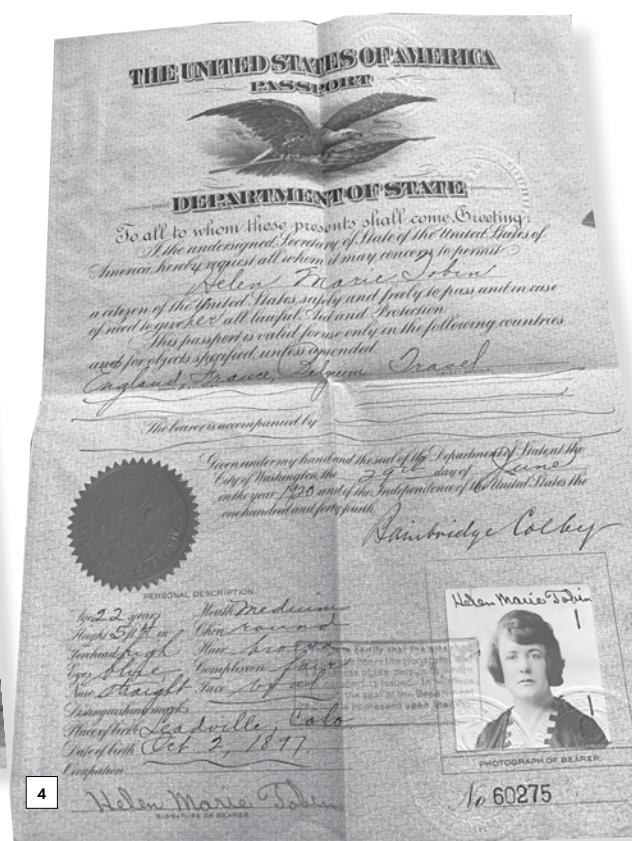 THE UNITED STATES OF AMERICA
PASSPORT
DEPARTMENT OF STATE
To all to whom these presents shall come, Greeting:
I the undersigned, Secretary of State of the United States of
America, hereby request all whom it may concern to permit
Helen Marie Tobin
a citizen of the United States, safely and freely to pass and in case
of need to give her all lawful Aid and Protection.
This passport is valid for use only in the following countries
and for objects specified, unless amended.
England, France, Belgium Travel
The bearer is accompanied by
Given under my hand and the seal of the Department of State at the
City of Washington, the 29th day of June
in the year 1920 and of the Independence of the United States the
one hundred and forty fourth.
Bainbridge Colby
PERSONAL DESCRIPTION.
Age 22 years Mouth medium
Height 5 ft in Chin round
Forehead high Hair brown
Eyes blue Complexion fair
Nose straight Face oval
Distinguishing marks
Place of birth Leadville, Colo
Date of birth Oct. 2, 1897.
Occupation
Helen Marie Tobin
SIGNATURE OF BEARER.
Helen Marie Tobin
PHOTOGRAPH OF BEARER.
No 60275
4